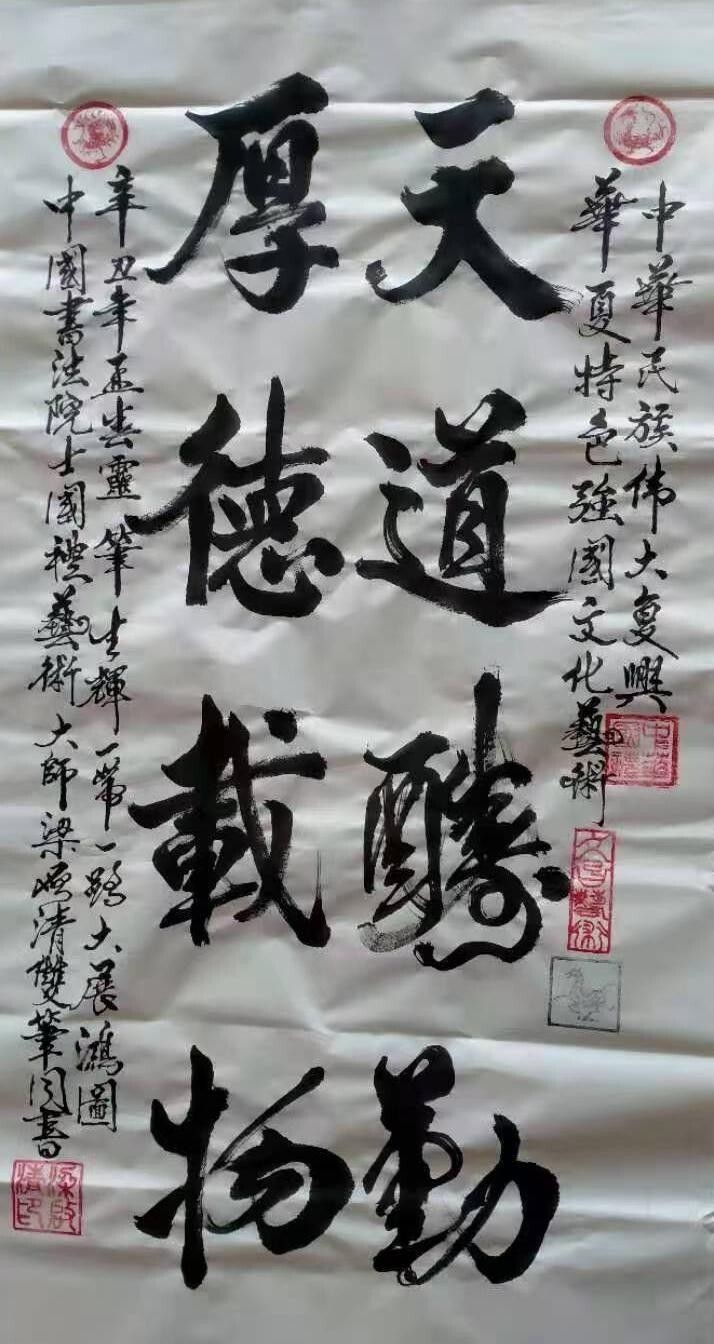 中華民族伟大复興
華夏特色強國文化藝術
天道醻勤
厚德載物
辛丑年孟春靈筆生輝一帶一路大展鴻圖
中國書法院士國禮藝術大師梁清雙筆同書